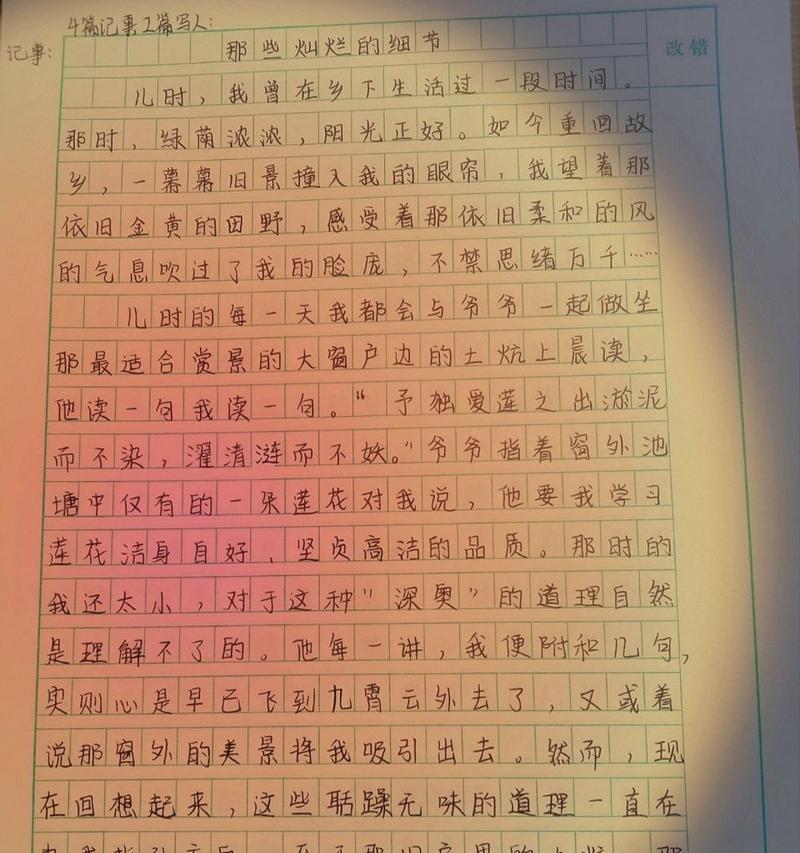 4篇记事1篇写人:
记事:
改错
那些灿烂的细节
儿时，我曾在乡下生活过一段时间。
那时，绿荫浓浓，阳光正好。如今重回故
乡，一幕幕旧景撞入我的眼帘，我望着那
依旧金黄的田野，感受着那依旧柔和的风
的气息吹过了我的脸庞，不禁思绪万千……
儿时的每一天我都会与爷爷一起做坐
那最适合赏景的大窗户边的土炕上晨读，
他读一句我读一句。“予独爱莲之出淤泥
而不染，濯清涟而不妖。”爷爷指着窗外池
塘中仅有的一朵莲花对我说，他要我学习
莲花洁身自好、坚贞高洁的品质。那时的
我还太小，对于这种”深奥”的道理自然
是理解不了的。他每一讲，我便附和几句，
实则心是早已飞到九霄云外去了，又或着
说那窗外的美景将我吸引出去。然而，现
在回想起来，这些聒躁无味的道理一直在